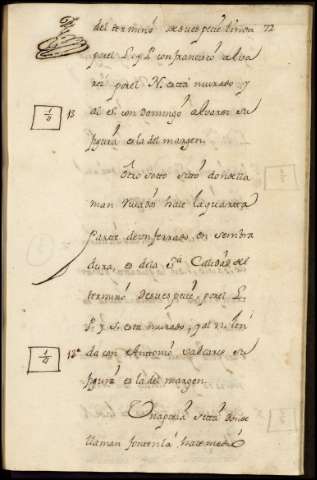 72
del termino desuespecie linda
por el L. y P. con francisco alva
rez por el N. esta murado y
al el con Domingo alvarez su
figura es la del margen.
1/8 13
Otro soto sito donde lla
man hace la quarta
parte de un ferrado, en sembra
dura, es de la Calidad del
termino desuespecie, por el L.
P. y S. esta murado, y al N. lin
da con Antonio Valcarce su
figura es la del margen.
1/4 13
sita donde
llaman fontenla hace medio